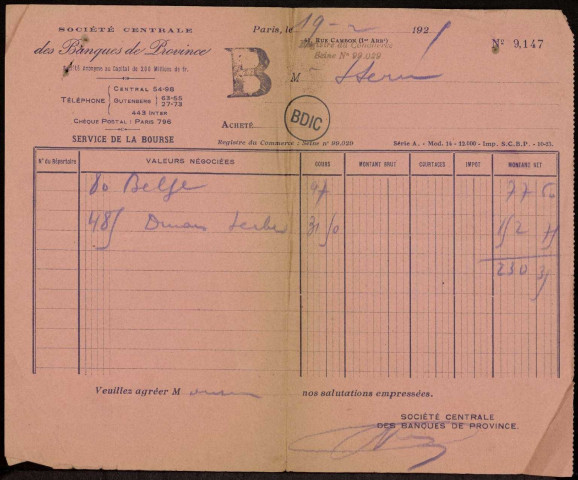 SOCIÉTÉ CENTRALE
des Banques de Province
Société Anonyme au Capital de 200 Millions de fr.
TÉLÉPHONE
CENTRAL 54-98
GUTENBERG 63-65
27-73
443 INTER
CHÈQUE POSTAL : PARIS 796
SERVICE DE LA BOURSE
Paris, le 19-2 192
41, RUE CAMBON (1er ARRt)
Registre du Commerce
Seine Nº 99.029
Nº 9,147
B
M Stern
BDIC
ACHETÉ
Registre du Commerce : Seine nº 99.020
Série A. - Mod. 14 - 12.000 - Imp. S.C.B.P. - 10-23.
Nº du Répertoire VALEURS NÉGOCIÉES COURS MONTANT BRUT COURTAGES IMPOT MONTANT NET
80 Belge 97 77 60
485 Dinars Serbes 31 50 152 75
230 35
Veuillez agréer M nos salutations empressées.
SOCIÉTÉ CENTRALE
DES BANQUES DE PROVINCE.